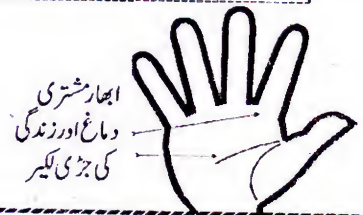 ابھار مشتری
دماغ اور زندگی
کی جڑی لکیر